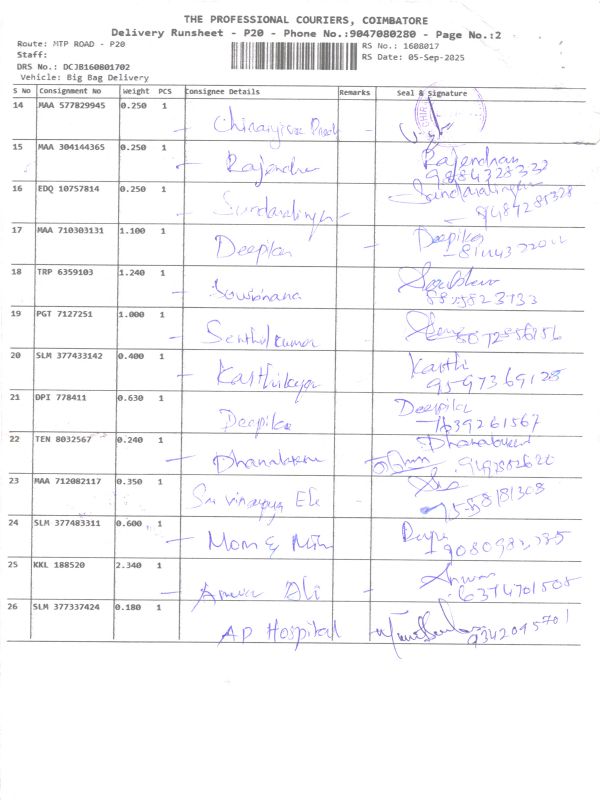 THE PROFESSIONAL COURIERS, COIMBATORE
Delivery Runsheet - P20 - Phone No.:9047080280 - Page No.:2
Route: MTP ROAD - P20
RS No.: 1608017
Staff:
RS Date: 05-Sep-2025
DRS No.: DCJB160801702
Vehicle: Big Bag Delivery
S No Consignment No Weight PCS Consignee Details Remarks Seal & Signature
14 MAA 577829945 0.250 1
15 MAA 304144365 0.250 1
Rajendran
Rajendran
9884328332
16 EDQ 10757814 0.250 1
Sundaralingam
Sundaralingam
9487285328
17 MAA 710303131 1.100 1
Deepika
Deepika
18 TRP 6359103 1.240 1
19 PGT 7127251 1.000 1
Senthil kumar
20 SLM 377433142 0.400 1
Karthikeyan
Karthi
9597369128
21 DPI 778411 0.630 1
Deepika
Deepika
22 TEN 8032567 0.240 1
23 MAA 712082117 0.350 1
Sri vinayaga Ele
24 SLM 377483311 0.600 1
Mom &
25 KKL 188520 2.340 1
Anwar Ali
Anwar
6374701505
26 SLM 377337424 0.180 1
AP Hospital